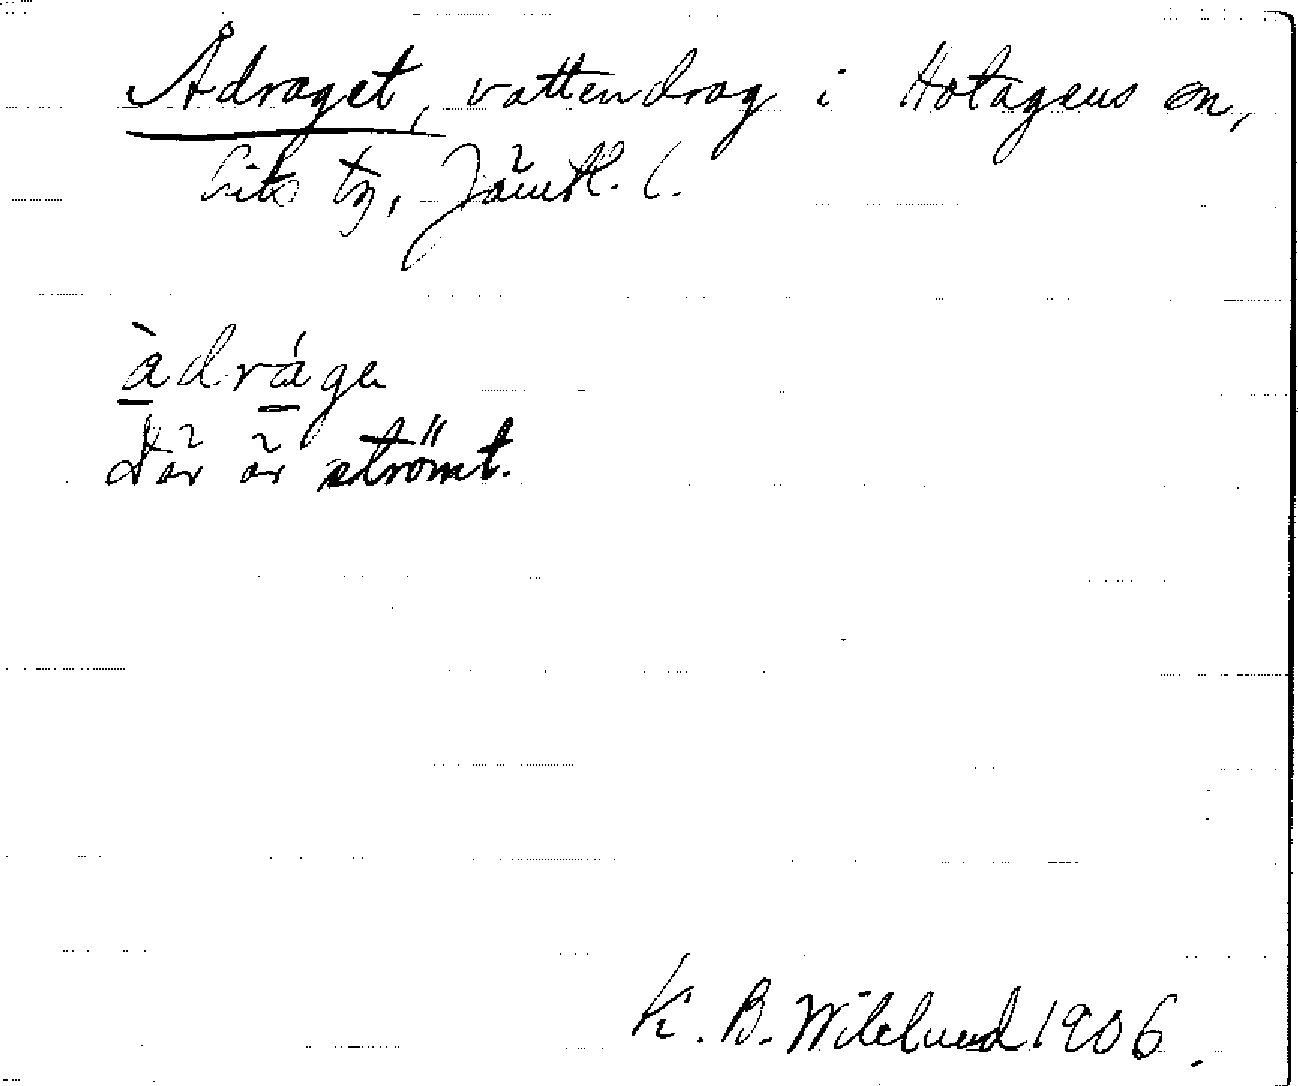 Ådraget, vattendrag i Hotagens sn,
Lits tg, Jämtl. l.
àdráge
Där är strömt.
K. B. Wiklund 1906.